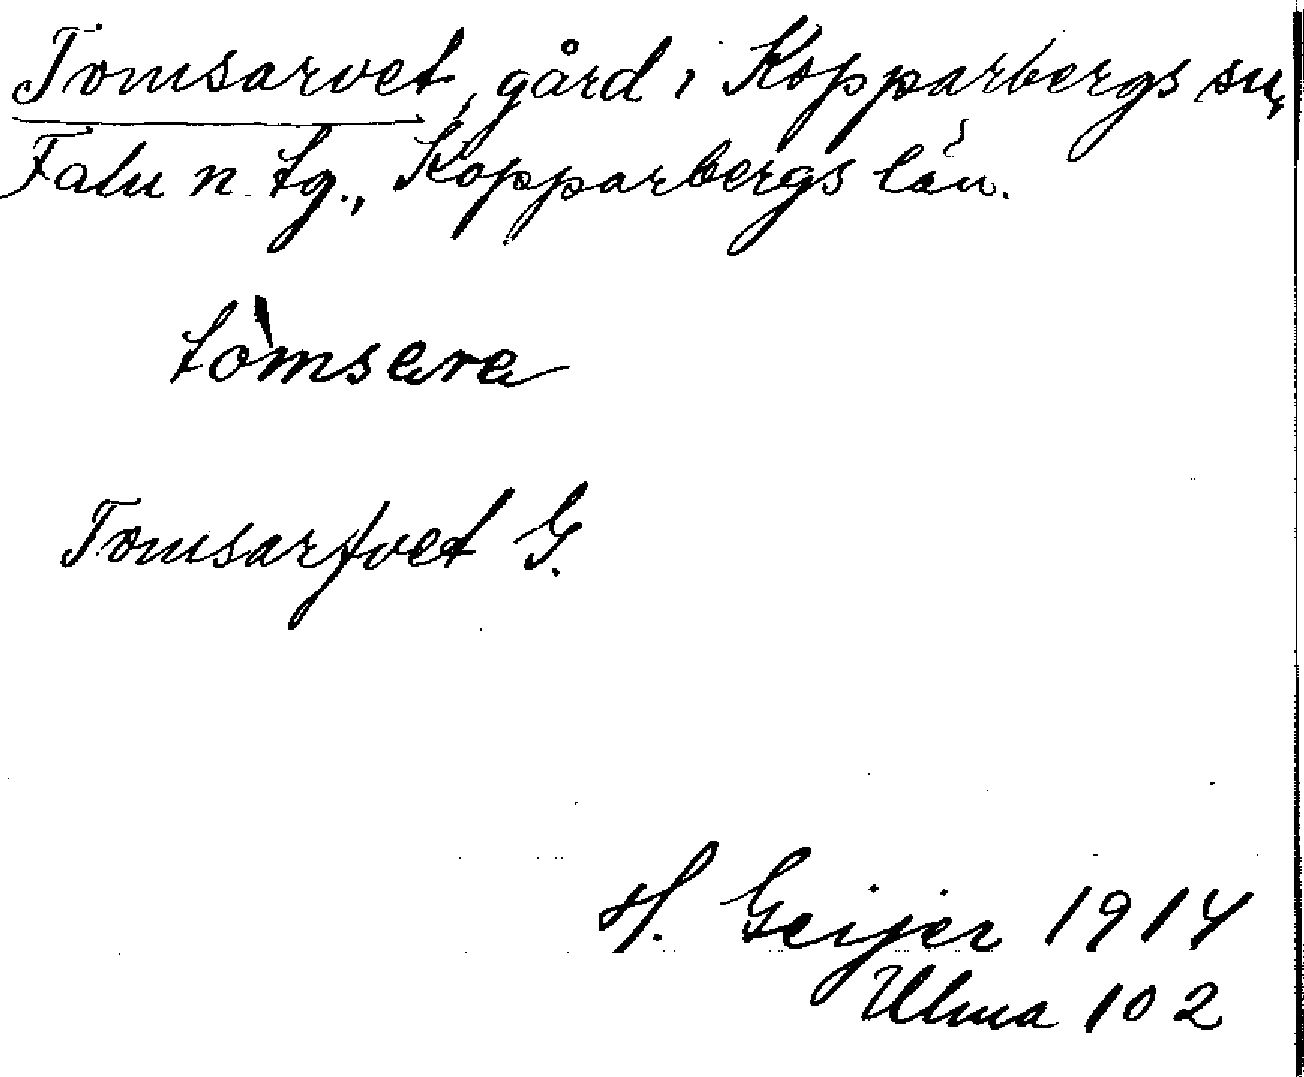 Tomsarvet, gård i Kopparbergs sn,
Falu n. tg., Kopparbergs län.
tòmsara
Tomsarfvet G.
H. Geijer 1914
Ulma 102